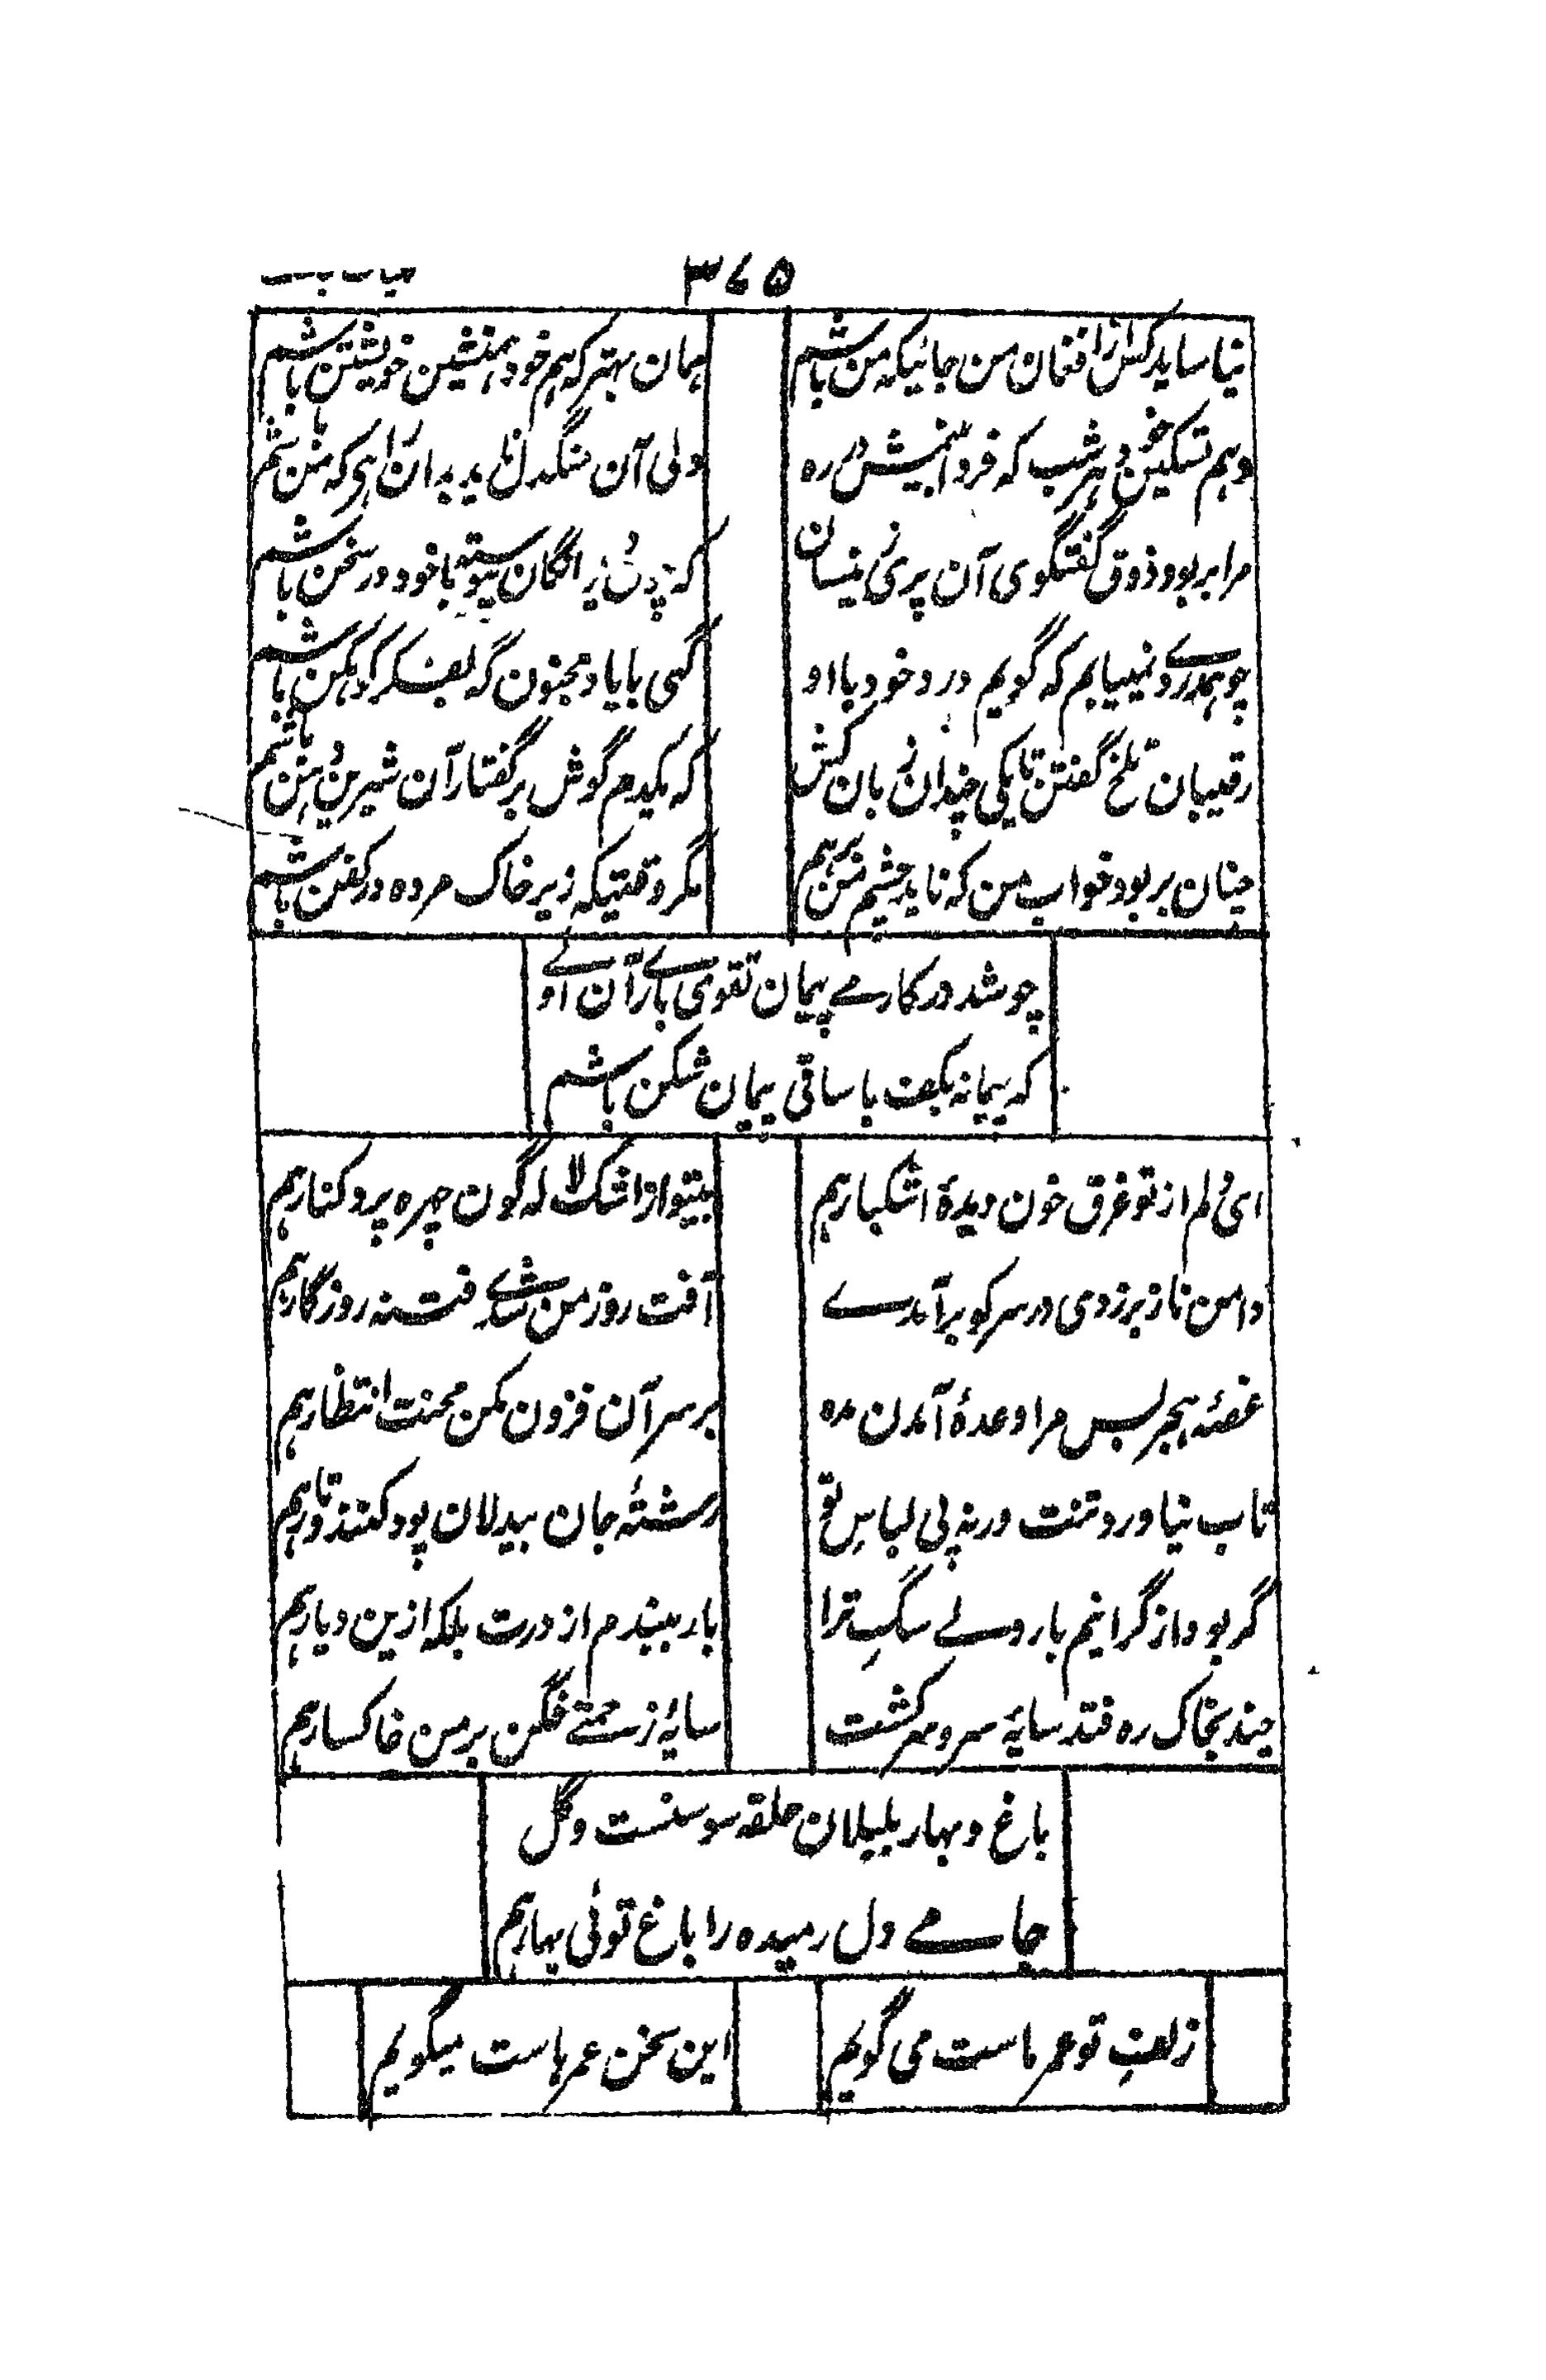 ۳۶۵
نیاساید کس از افغان من جائیکه من باشم
همان بهتر که هم خود همنشین خویشتن باشم
دهم تسکین خود هر شب که فردا بینمش در ره
ولی آن سنگدل ناید بدان راهی که من باشم
مرا بربود ذوق گفتگوی آن پری زینسان
که چون دیوانگان بیتو باخود در سخن باشم
چو همدردے نمییابم که گویم درد خود با او
گهی بایاد مجنون گه بفکر کوهکن باشم
رقیبان تلخ گفتن تا یکی چندان زبان کش
که یکدم گوش بر گفتار آن شیرین دهن باشم
چنان بربود خواب من که ناید چشم من برهم
مگر وقتیکه زیر خاک مرده در کفن باشم
چو شد در کار مے پیمان تقوی بار آن اولے
که پیمانه بکف با ساقی پیمان شکن باشم
ای دلم از تو غرق خون دیدهٔ اشکبار هم
بیتو از اشک لاله گون چهره پر و کنار هم
دامن ناز برزدی در سر کو برآمدے
آفت روز من شدے فتنه روزگار هم
غصهٔ هجر بس مرا وعدهٔ آمدن مده
بر سر آن فزون مکن محنت انتظار هم
تاب نیاورد تنت ورنه پی لباسِ تو
رشتهٔ جان بیدلان پود کنند و تار هم
گر بود از گرانیم بار دلے سگِ ترا
بار ببندم از درت بلکه ازین دیار هم
چند بخاک ره فتد سایهٔ سرو سرکشت
سایهٔ زحمتے فگن بر من خاکسار هم
باغ و بهار بلبلان حلقه سوسنست و گل
جامے دل رمیده را باغ توئی بهار هم
زلفِ تو عمر ماست می گویم
این سخن عمرهاست میگویم